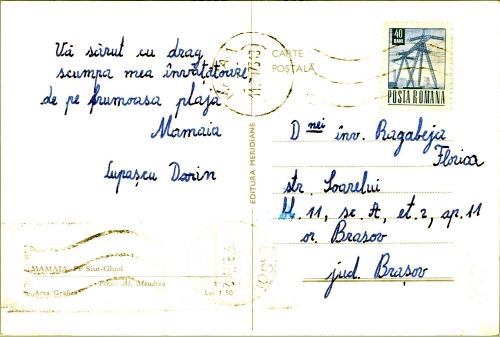 Vă sărut cu drag,
scumpa mea învățătoare
de pe frumoasa plajă
Mamaia
Lupașcu Dorin
MAMAIA. Pe Siut-Ghiol
Foto: Al. Mendrea
Arta Grafica
Lei 1,50
EDITURA MERIDIANE
CARTE
POSTALĂ
40
BANI
POSTA ROMANA
D nei înv. Ragabeja
Florica
str. Soarelui
bl. 11, sc. A, et. 2, ap. 11
or. Brasov
jud. Brașov